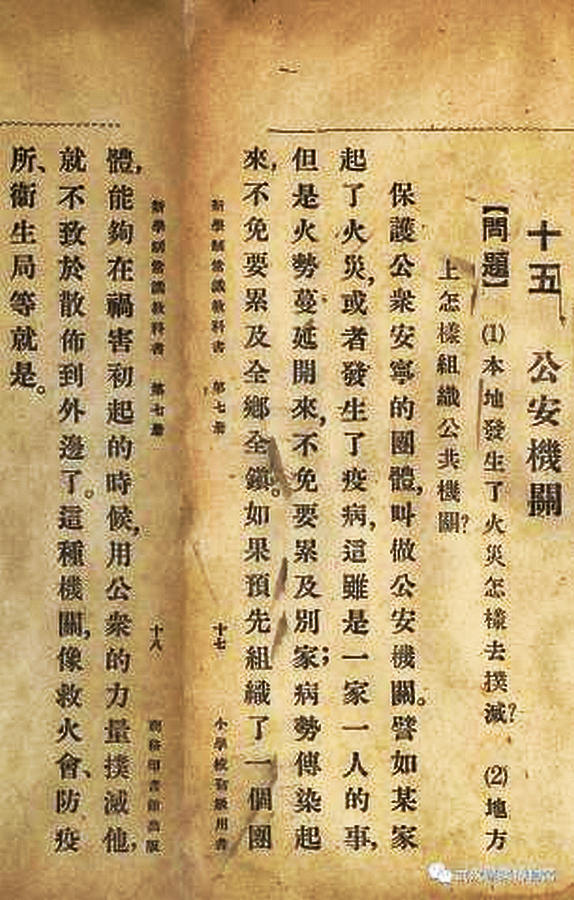 十五　公安機關
【問題】　(1)本地發生了火災怎樣去撲滅？　(2)地方
上怎樣組織公共機關？
保護公衆安寧的團體，叫做公安機關。譬如某家
起了火災，或者發生了疫病，這雖是一家一人的事，
但是火勢蔓延開來，不免要累及別家；病勢傳染起
來，不免要累及全鄉全鎭。如果預先組織了一個團
新學制常識教科書　第七册　十七　小學校初級用書
新學制常識教科書　第七册　十八　商務印書館出版
體，能夠在禍害初起的時候，用公衆的力量撲滅他，
就不致於散佈到外邊了。這種機關，像救火會、防疫
所、衛生局等就是。